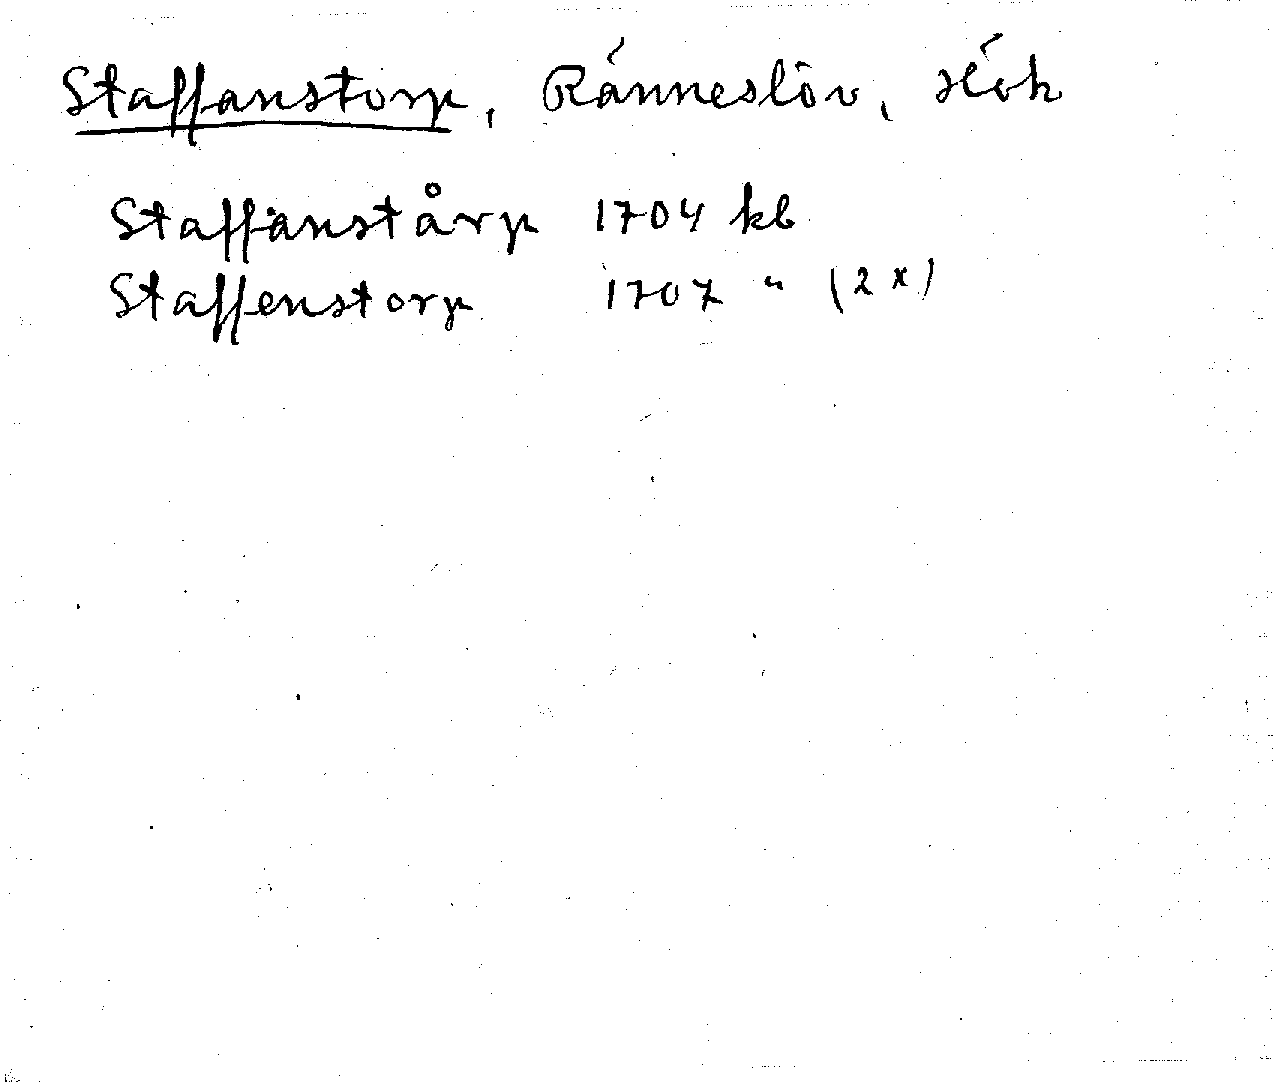 Staffanstorp, Ränneslöv, Hök
Staffänstårp 1704 kb
Staffenstorp 1707 " (2 x)